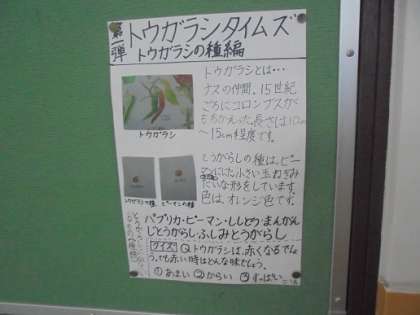 第一弾
トウガラシタイムズ
トウガラシの種編
トウガラシとは…
ナスの仲間。15世紀
ごろにコロンブスが
もちかえった。長さは10cm
～15cm程度です。
トウガラシ
とうがらしの種は、ピー
マンににた小さい玉ねぎみ
たいな形をしています。
色は、オレンジ色です。
トウガラシの種
ピーマンの種
パプリカ・ピーマン・ししとう・まんがん
じとうがらし・ふしみとうがらし
クイズ Qトウガラシは、赤くなるでしょ
う。でも赤い時はどんな味でしょう。
①あまい ②からい ③すっぱい